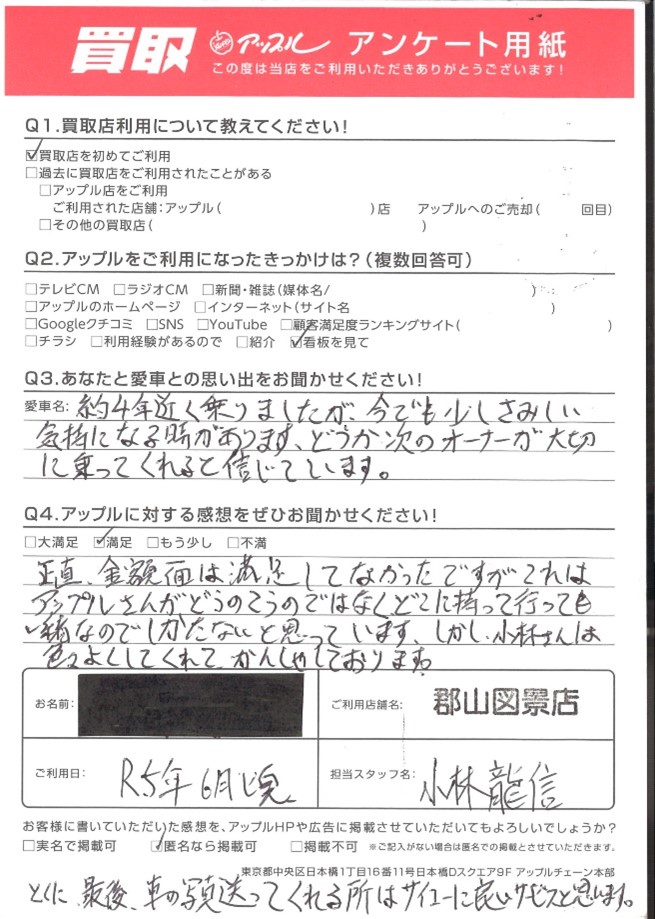 買取 アップル アンケート用紙
この度は当店をご利用いただきありがとうございます!
Q1.買取店利用について教えてください!
☑買取店を初めてご利用
□過去に買取店をご利用されたことがある
□アップル店をご利用
ご利用された店舗:アップル( )店 アップルへのご売却( 回目)
□その他の買取店( )
Q2.アップルをご利用になったきっかけは?(複数回答可)
□テレビCM □ラジオCM □新聞・雑誌(媒体名/ )
□アップルのホームページ □インターネット(サイト名 )
□Googleクチコミ □SNS □YouTube □顧客満足度ランキングサイト( )
□チラシ □利用経験があるので □紹介 ☑看板を見て
Q3.あなたと愛車との思い出をお聞かせください!
愛車名: 約4年近く乗りましたが、今でも少しさみしい
気持になる時があります、どうか次のオーナーが大切
に乗ってくれると信じています。
Q4.アップルに対する感想をぜひお聞かせください!
□大満足 ☑満足 □もう少し □不満
正直、金額面は満足してなかったですがこれは
アップルさんがどうのこうのではなくどこに持って行っても
一緒なのでしかたないと思っています、しかし、小林さんは
色々よくしてくれて、かんしゃしております。
お名前: ご利用店舗名: 郡山図景店
ご利用日: R5年6月頃 担当スタッフ名: 小林龍信
お客様に書いていただいた感想を、アップルHPや広告に掲載させていただいてもよろしいでしょうか?
□実名で掲載可 ☑匿名なら掲載可 □掲載不可 ※ご記入がない場合は匿名での掲載とさせていただきます。
東京都中央区日本橋1丁目16番11号日本橋Dスクエア9F アップルチェーン本部
とくに、最後、車の写真送ってくれる所はサイコーに良いサービスと思います。